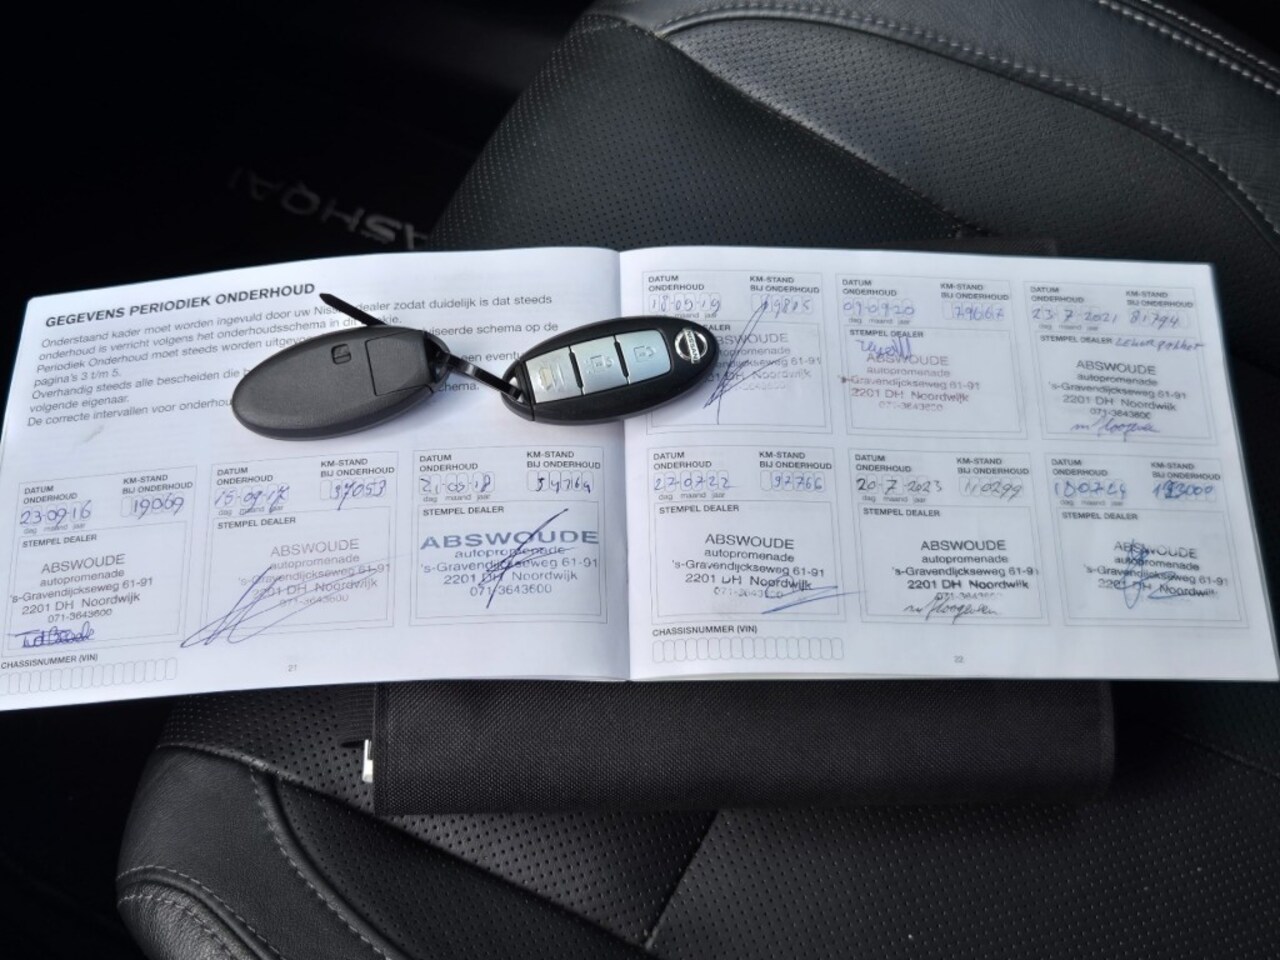 QASHQAI
GEGEVENS PERIODIEK ONDERHOUD
Onderstaand kader moet worden ingevuld door uw Nissan dealer zodat duidelijk is dat steeds
onderhoud is verricht volgens het onderhoudsschema in dit
Periodiek Onderhoud moet steeds worden uitgevoerd schema op de
pagina's 3 t/m 5.
Overhandig steeds alle bescheiden die
volgende eigenaar.
De correcte intervallen voor schema.
NISSAN
DATUM ONDERHOUD
KM-STAND BIJ ONDERHOUD
23-09-16 19069
dag maand jaar
STEMPEL DEALER
ABSWOUDE
autopromenade
's-Gravendijckseweg 61-91
2201 DH Noordwijk
071-3643600
DATUM ONDERHOUD
KM-STAND BIJ ONDERHOUD
15-09-17 37053
dag maand jaar
STEMPEL DEALER
ABSWOUDE
autopromenade
's-Gravendijckseweg 61-91
2201 DH Noordwijk
071-3643600
DATUM ONDERHOUD
KM-STAND BIJ ONDERHOUD
54764
dag maand jaar
STEMPEL DEALER
ABSWOUDE
autopromenade
's-Gravendijckseweg 61-91
2201 DH Noordwijk
071-3643600
CHASSISNUMMER (VIN)
21
DATUM ONDERHOUD
KM-STAND BIJ ONDERHOUD
18-09-19 69815
autopromenade
61-91
DH Noordwijk
DATUM ONDERHOUD
KM-STAND BIJ ONDERHOUD
79667
dag maand jaar
STEMPEL DEALER
ABSWOUDE
autopromenade
's-Gravendijckseweg 61-91
2201 DH Noordwijk
071-3643600
DATUM ONDERHOUD
KM-STAND BIJ ONDERHOUD
23-7-2021 81794
dag maand jaar
STEMPEL DEALER
ABSWOUDE
autopromenade
's-Gravendijckseweg 61-91
2201 DH Noordwijk
071-3643600
DATUM ONDERHOUD
KM-STAND BIJ ONDERHOUD
27-07-22 97766
dag maand jaar
STEMPEL DEALER
ABSWOUDE
autopromenade
's-Gravendijckseweg 61-91
2201 DH Noordwijk
DATUM ONDERHOUD
KM-STAND BIJ ONDERHOUD
20-7-2023 110299
dag maand jaar
STEMPEL DEALER
ABSWOUDE
autopromenade
's-Gravendijckseweg 61-91
2201 DH Noordwijk
071-3643600
DATUM ONDERHOUD
KM-STAND BIJ ONDERHOUD
dag maand jaar
STEMPEL DEALER
ABSWOUDE
autopromenade
's-Gravendijckseweg 61-91
2201 DH Noordwijk
CHASSISNUMMER (VIN)
22